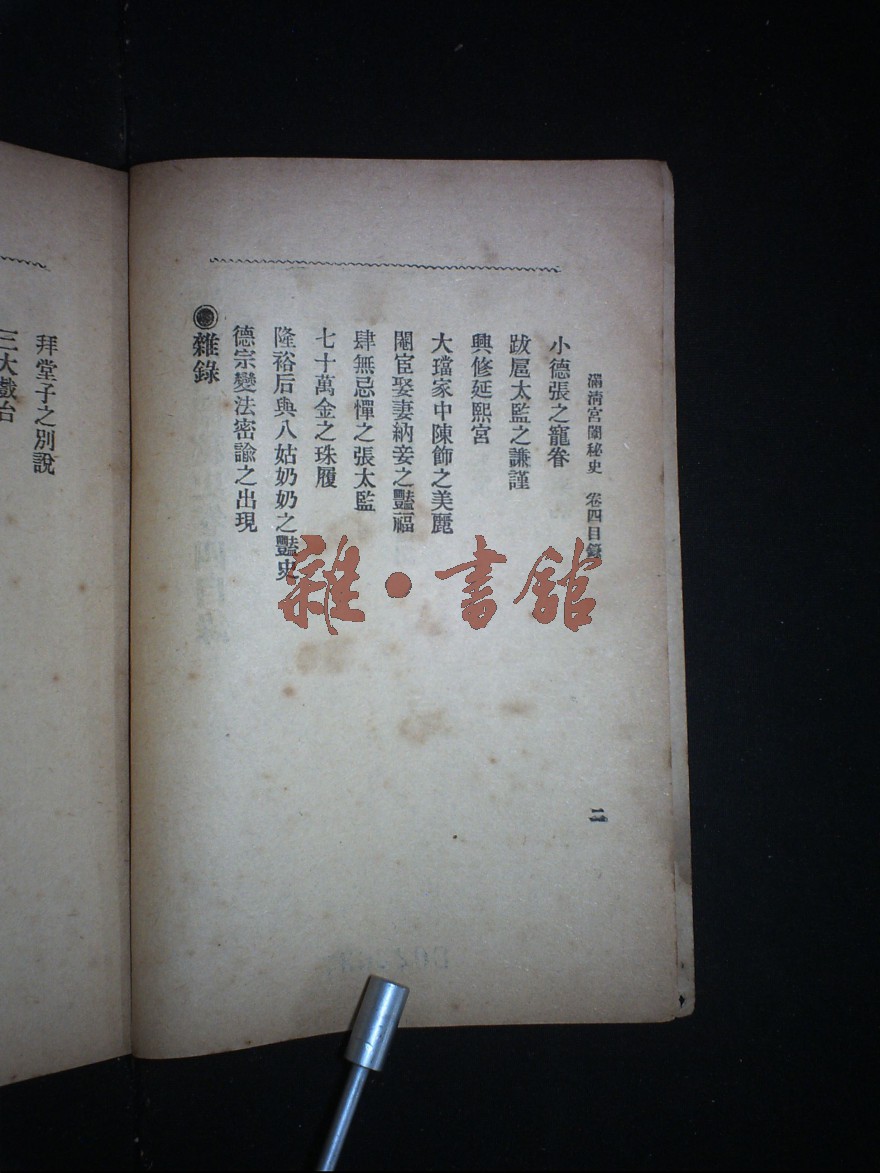 滿淸宮闈秘史 卷四目錄
二
小德張之寵眷
跋扈太監之謙謹
興修延熙宮
大璫家中陳飾之美麗
閹宦娶妻納妾之豔福
肆無忌憚之張太監
七十萬金之珠履
隆裕后與八姑奶奶之豔史
德宗變法密諭之出現
◉雜錄
拜堂子之別說
三大戲台
雜·書館